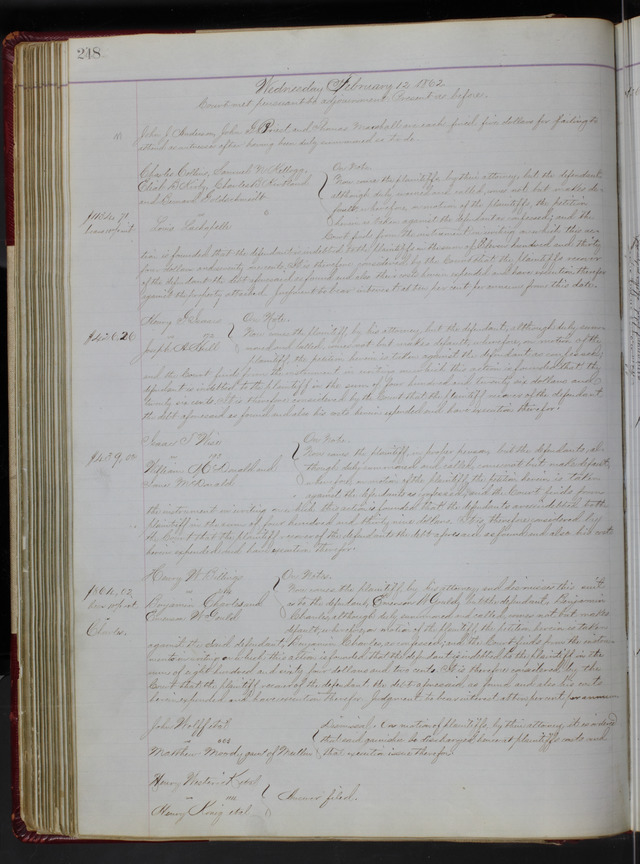 248
Wednesday February 12 1862
Court met pursuant to adjournment Present as before.
John J. Anderson, John and Thomas Marshall are each fined five dollars for failing to
attend as witnesses after having been duly summoned so to do.
Charles Collins, Samuel N. Kellogg, On Note
Charles B. Now comes the plaintiffs by their attorney, but the defendant
and Edward although duly summoned and called, comes not but makes de-
vs fault, wherefore on motion of the plaintiffs the petition
Louis herein is taken against the defendant as confessed, and the
Court finds from the instrument in writing on which this ac-
tion is founded that the defendant is indebted to the plaintiffs in the sum of Eleven hundred and thirty
four dollars and seventy one cents, It is therefore considered by the Court that the plaintiffs recover
of the defendant the debt aforesaid as found and also their costs herein expended and have execution therefor
against the property attached. Judgment to bear interest at ten per cent per annum from this date.
Henry On Note.
vs Now comes the plaintiff by his attorney but the defendant, although duly sum-
Joseph moned and called, comes not but makes default, wherefore, on motion of the
$426.26
plaintiff, the petition herein is taken against the defendant as confessed,
and the Court finds from the instrument in writing on which this action is founded that the
defendant is indebted to the plaintiff in the sum of four hundred and twenty six dollars and
twenty six cents. It is therefore considered by the Court that the plaintiff recover of the defendant
the debt aforesaid as found and also his costs herein expended and have execution therefor.
On Note
vs Now comes the plaintiff, in proper person, but the defendants, al-
$439.00 William McDonald and though duly summoned and called, come not but make default,
Jane McDonald wherefore, on motion of the plaintiff, the petition herein is taken
against the defendants as confessed, and the Court finds from
the instrument in writing on which this action is founded that the defendants are indebted to the
plaintiff in the sum of four hundred and thirty nine dollars. It is therefore considered by
the Court that the plaintiff recover of the defendants the debt aforesaid as found and also his costs
herein expended and have execution therefor.
Henry W. Billings On Note.
vs Now comes the plaintiff by his attorney and dismisses this suit
$864.02
Benjamin Charles and as to the defendant, Emerson W. Gould, but the defendant Benjamin
Emerson W. Gould Charles, although duly summoned and called, comes not but makes
Charles.
default, wherefore, on motion of the plaintiff the petition herein is taken
against the said defendant, Benjamin Charles, as confessed, and the Court finds from the instru-
ment in writing on which this action is founded that the defendant is indebted to the plaintiff in the
sum of eight hundred and sixty four dollars and two cents. It is therefore considered by the
Court that the plaintiff recover of the defendant the debt aforesaid as found and also his costs
herein expended and have execution therefor. Judgment to bear interest at ten per cent per annum
John Wolff et al
vs Dismissed on motion of plaintiffs, by their attorney.
Matthew Moody, garnt of that execution issue therefor.
Henry et al
vs Answer filed.
Henry King et al